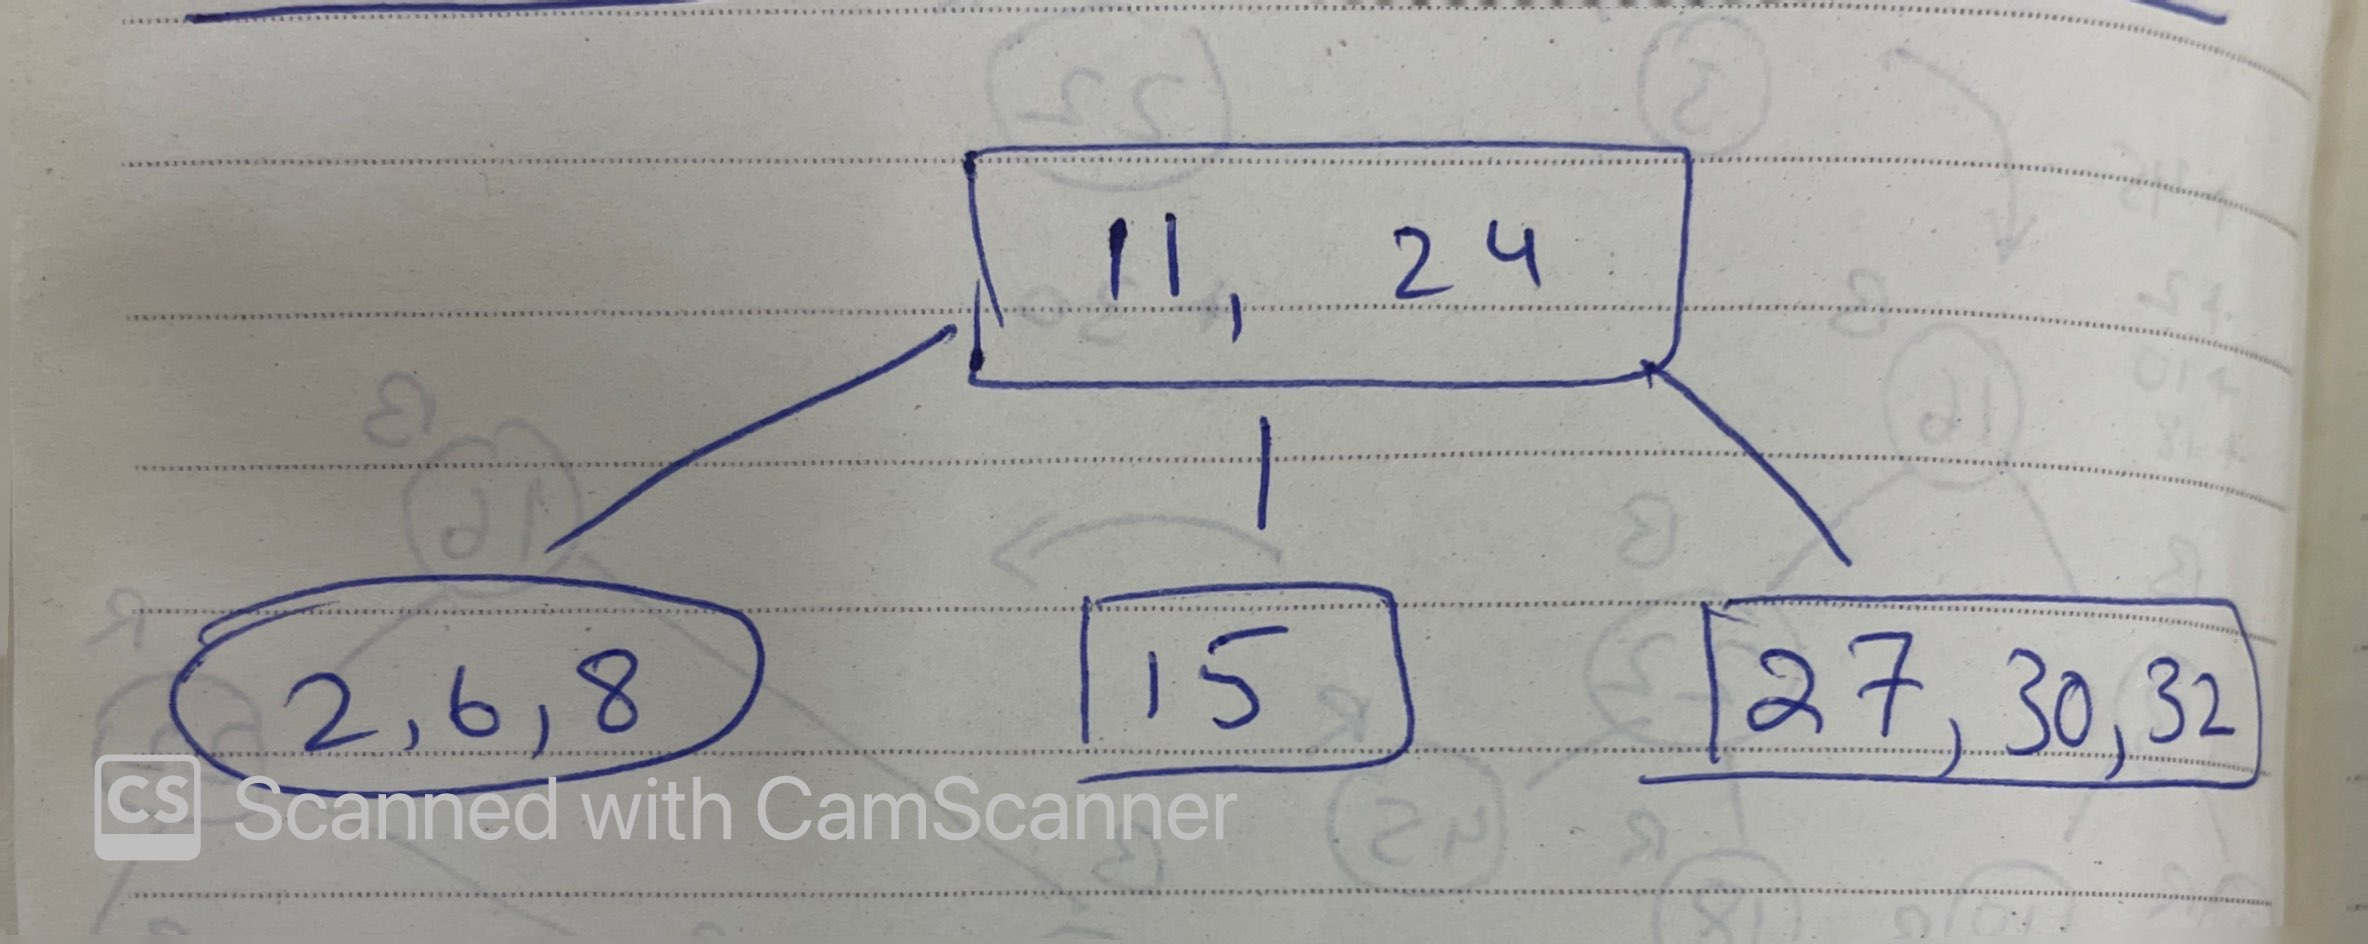 11, 24
2, 6, 8
15
27, 30, 32
CS Scanned with CamScanner